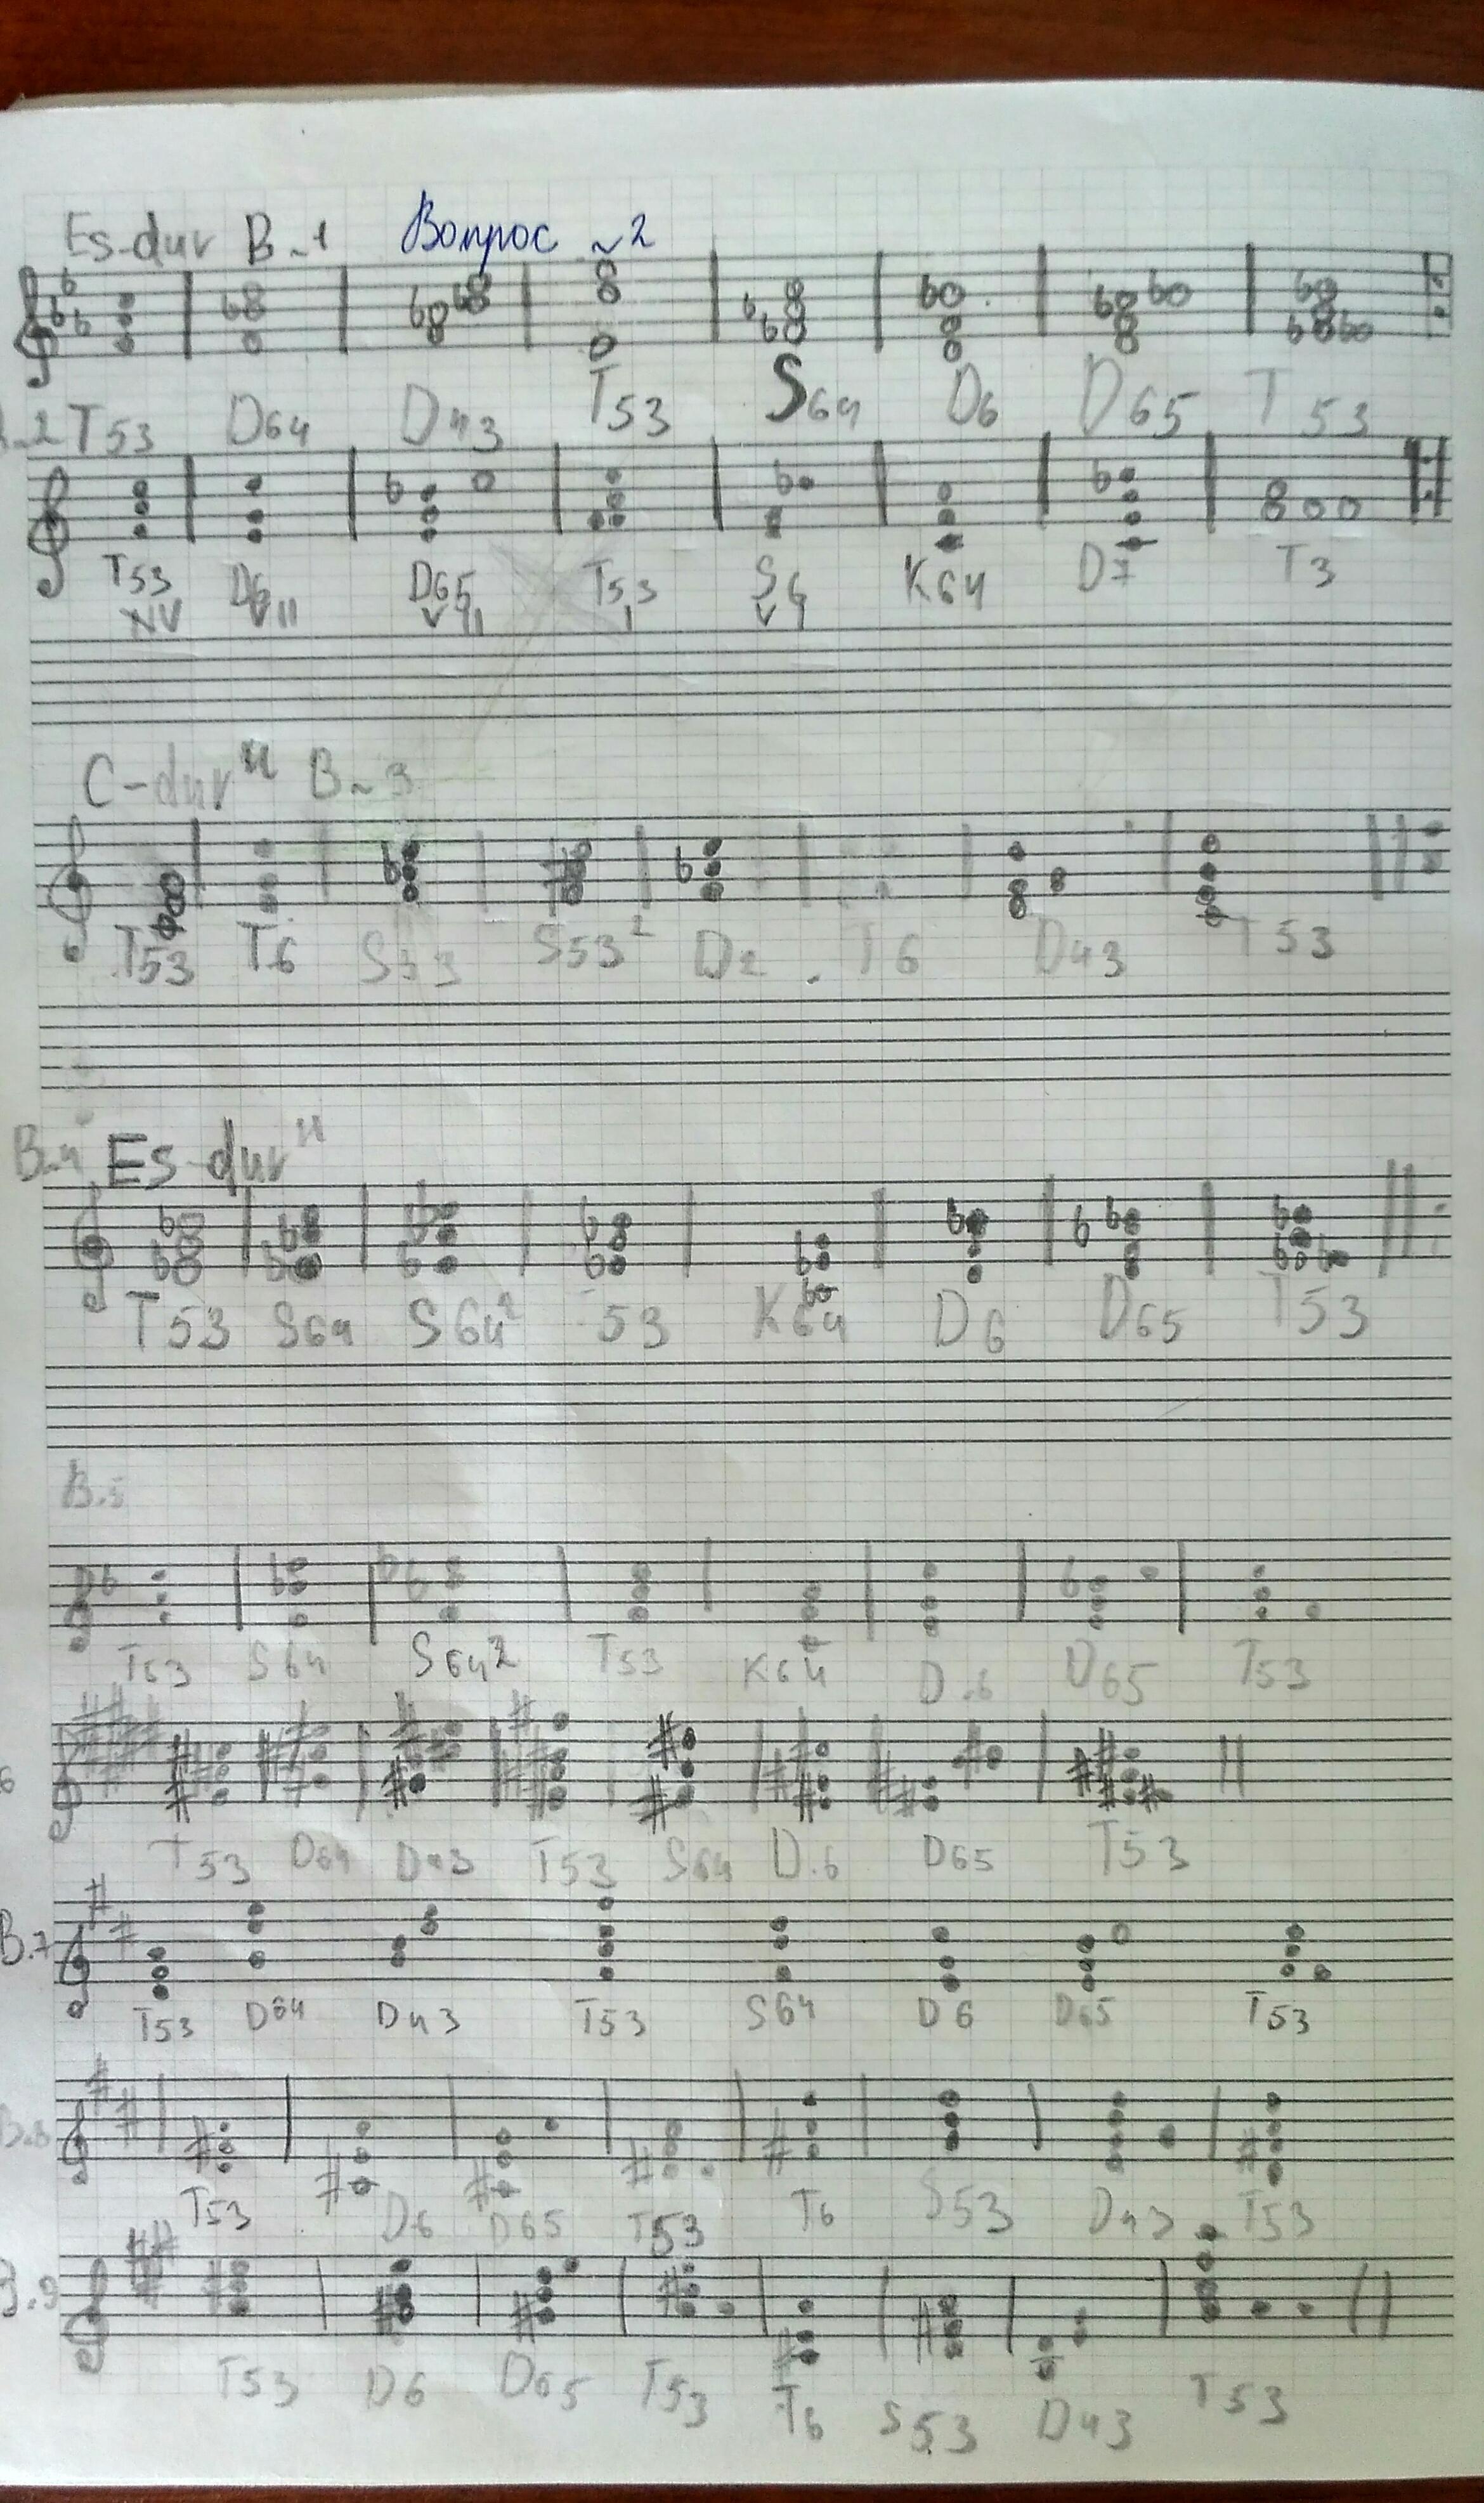 Es-dur В~1 Вопрос ~2
T53 D64 D43 T53 S64 D6 D65 T53
T53 D6 D65 T53 S6 K64 D7 T3
VII VII I VI
C-dur" В~3
T53 T6 S53 S53² D2 T6 D43 T53
В~4 Es-dur"
T53 S64 S64² 53 K64 D6 D65 T53
В.5
T53 S64 S64² T53 K64 D.6 D65 T53
6
T53 D64 D43 T53 S64 D.6 D65 T53
В.7
T53 D64 D43 T53 S64 D6 D65 T53
В.8
T53 D6 D65 T53 T6 S53 D43 T53
В.9
T53 D6 D65 T53 T6 S53 D43 T53